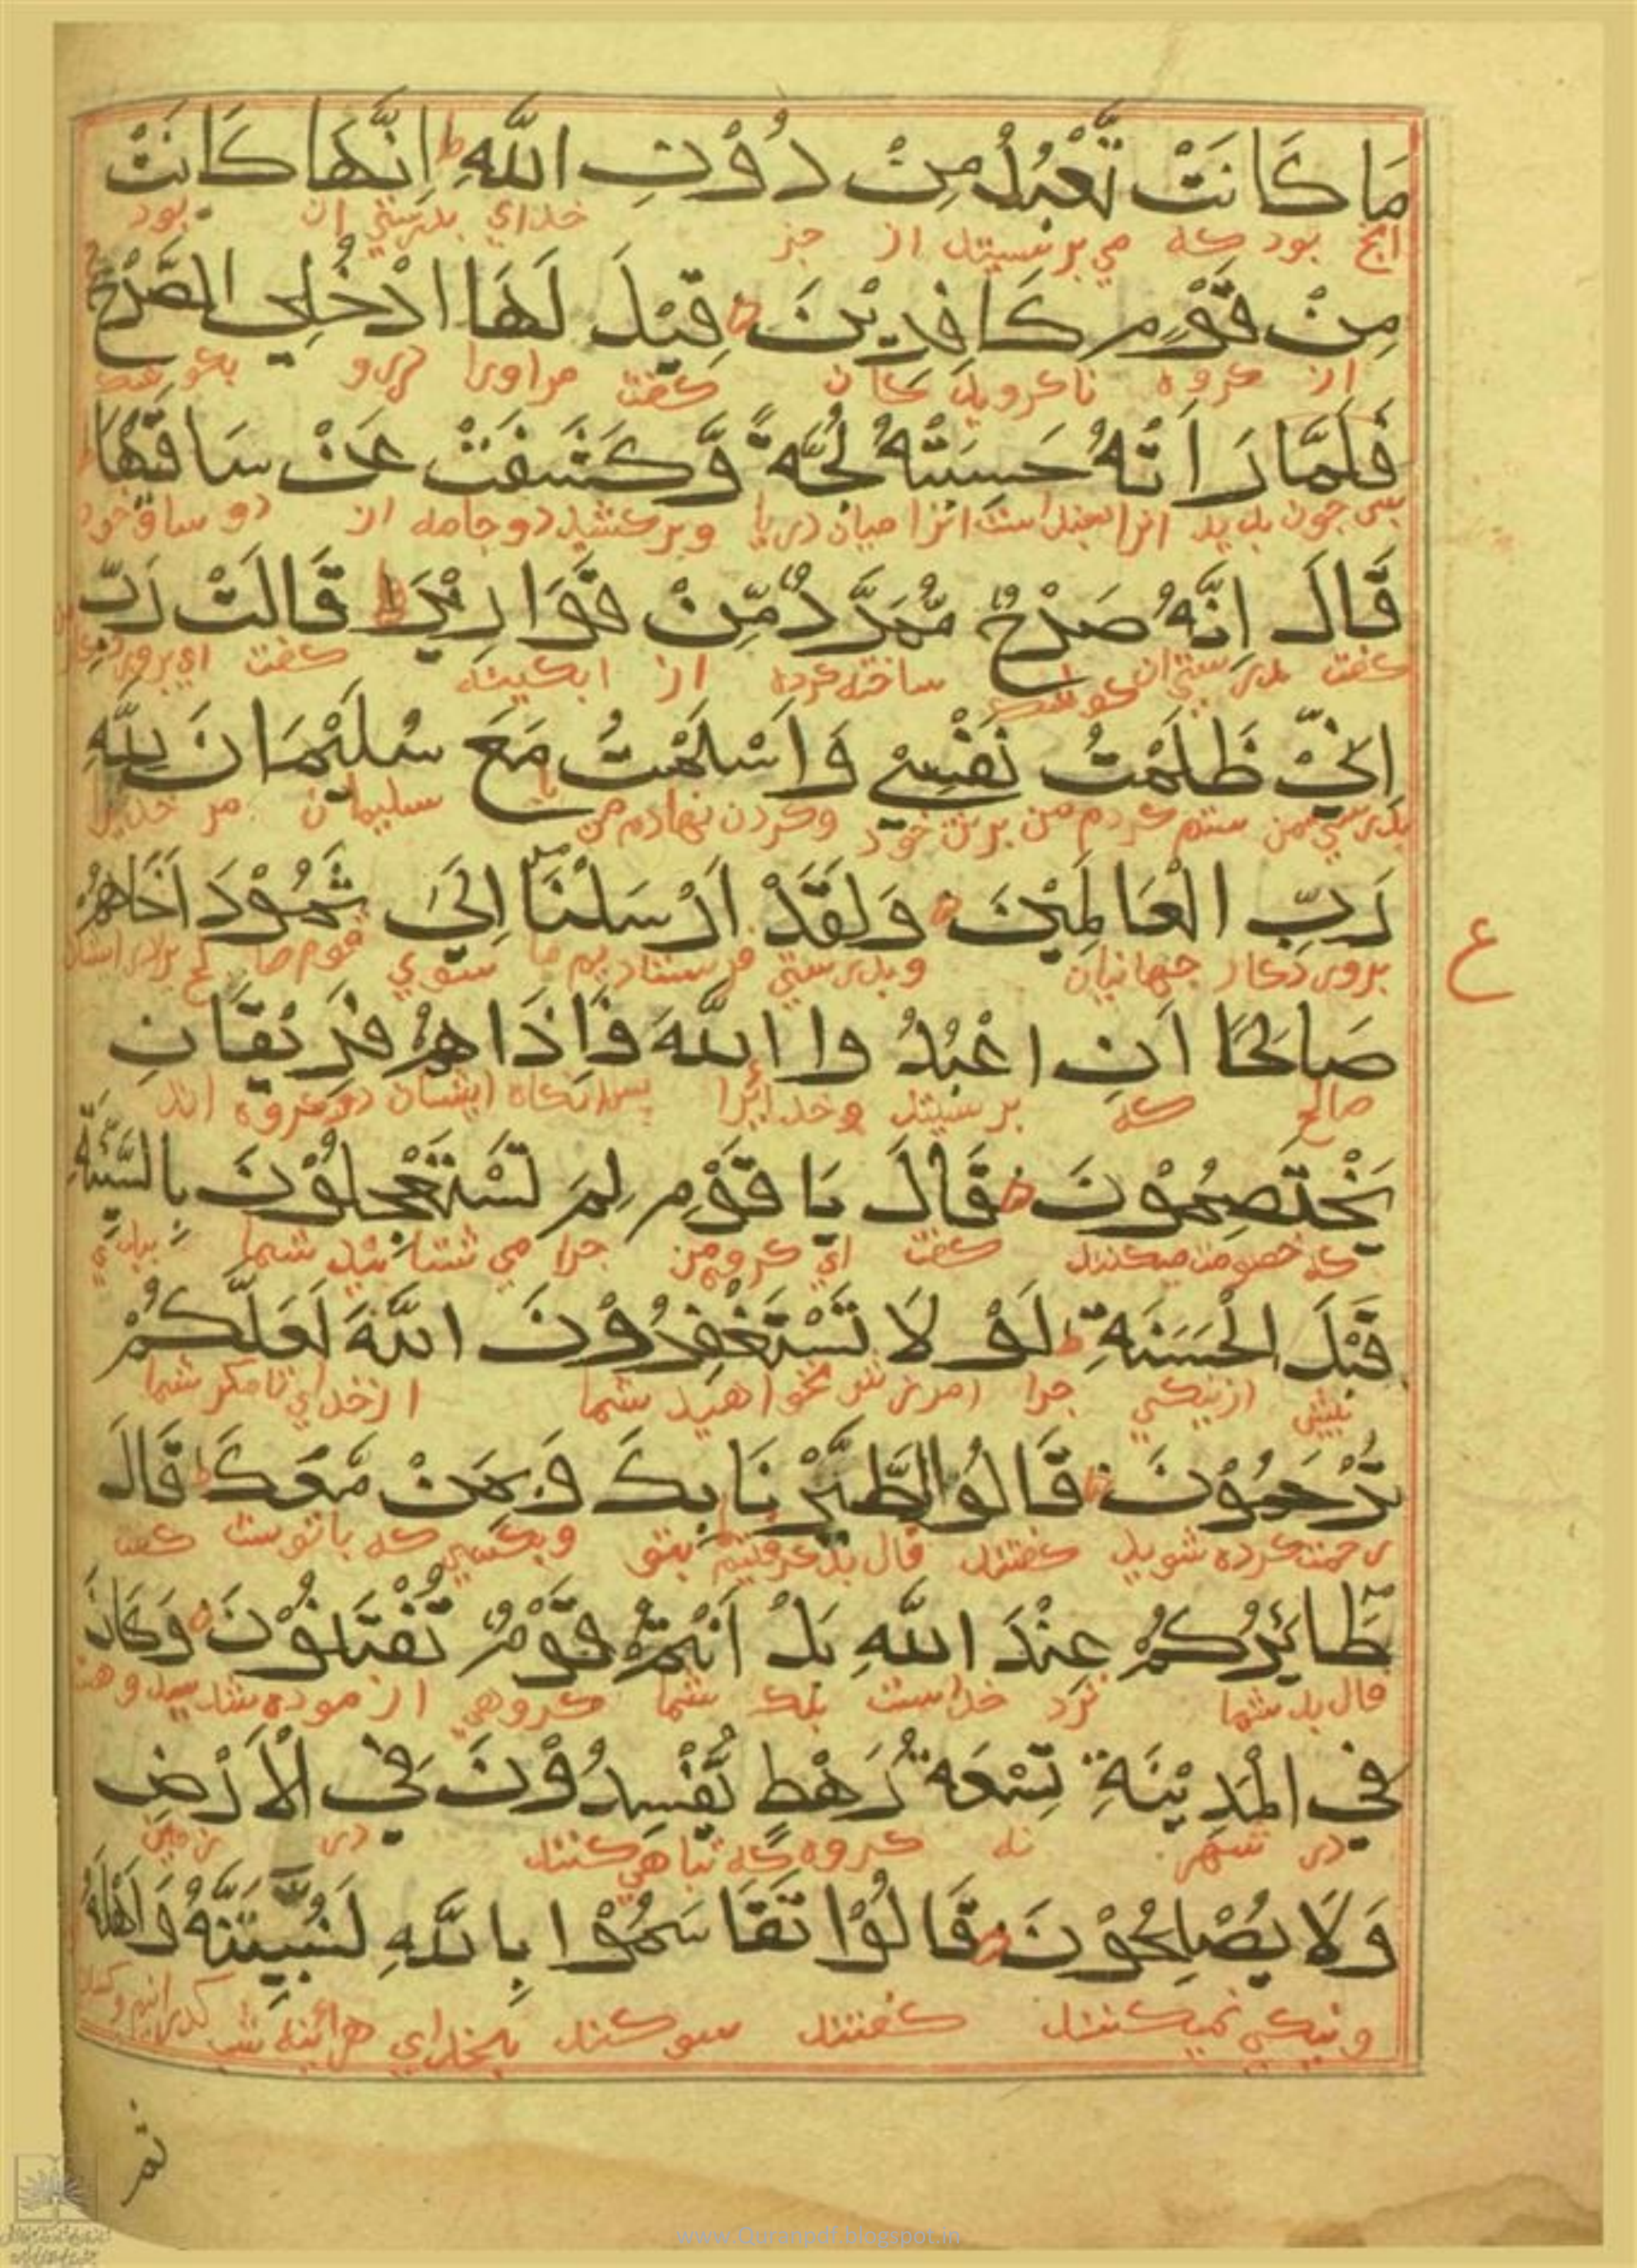 مَا كَانَتْ تَّعْبُدُ مِنْ دُوْنِ اللّٰهِ ط اِنَّهَا كَانَتْ
انچ بود كه مي پرستيد از جز خداي بدرستي ان بود
مِنْ قَوْمٍ كَافِرِيْنَ قِيْلَ لَهَا ادْخُلِي الصَّرْحَ
از گروه ناگرويدگان گفته مراورا درو بكوشك
فَلَمَّا رَاَتْهُ حَسِبَتْهُ لُجَّةً وَّكَشَفَتْ عَنْ سَاقَيْهَا
پس چون بديد انرا انرا ميان دريا وبركشيد دو جامه از دو ساق خود
قَالَ اِنَّهُ صَرْحٌ مُّمَرَّدٌ مِّنْ قَوَارِيْرَ ط قَالَتْ رَبِّ
گفت بدرستي ان كوشك ساخته كرده از ابگينه گفت اي پروردگار
اِنِّيْ ظَلَمْتُ نَفْسِيْ وَاَسْلَمْتُ مَعَ سُلَيْمَانَ لِلّٰهِ
بدرستي من ستم كردم من برتن خود وگردن نهادم من با سليمان مر خدايرا
رَبِّ الْعَالَمِيْنَ وَلَقَدْ اَرْسَلْنَا اِلَىٰ ثَمُوْدَ اَخَاهُمْ
پروردگار جهانيان وبدرستي فرستاديم ما سوي قوم برادر ايشان
ع
صَالِحًا اَنِ اعْبُدُوا اللّٰهَ فَاِذَا هُمْ فَرِيْقَانِ
صالح كه پرستيد خدايرا پس انگاه ايشان دو گروه اند
يَخْتَصِمُوْنَ قَالَ يَا قَوْمِ لِمَ تَسْتَعْجِلُوْنَ بِالسَّيِّئَةِ
كه خصومت ميكنند گفت اي گروه من چرا مي شتابيد شما ببدي
قَبْلَ الْحَسَنَةِ ط لَوْ لَا تَسْتَغْفِرُوْنَ اللّٰهَ لَعَلَّكُمْ
پيش از نيكي چرا امرزش نخواهيد شما از خداي تا مگر شما
تُرْحَمُوْنَ قَالُوا اطَّيَّرْنَا بِكَ وَبِمَنْ مَّعَكَ ط قَالَ
رحمت كرده شويد گفتند فال بد گرفتيم بتو وبكسي كه باتوست گفت
طَائِرُكُمْ عِنْدَ اللّٰهِ بَلْ اَنْتُمْ قَوْمٌ تُفْتَنُوْنَ وَكَانَ
فال بد شما نزد خداست بلك شما گروهي ازموده شديد
فِي الْمَدِيْنَةِ تِسْعَةُ رَهْطٍ يُّفْسِدُوْنَ فِي الْاَرْضِ
در شهر نه گروه كه تباهي كنند در زمين
وَلَا يُصْلِحُوْنَ قَالُوْا تَقَاسَمُوْا بِاللّٰهِ لَنُبَيِّتَنَّهُ وَاَهْلَهُ
ونيكي نميكنند گفتند سوگند بخداي هرائينه شب
ثم
www.Quranpdf.blogspot.in